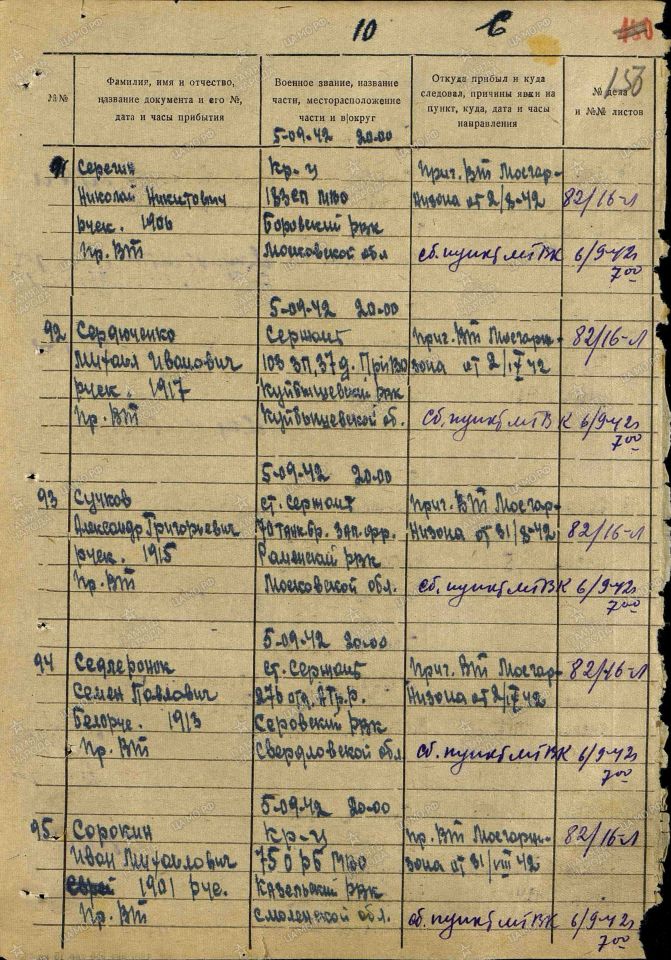 10 С 150
153
№№
Фамилия, имя и отчество, название документа и его №, дата и часы прибытия
Военное звание, название части, месторасположение части и в|округ
Откуда прибыл и куда следовал, причины явки на пункт, куда, дата и часы направления
№ дела и №№ листов
5-09-42 20-00
91 Серегин Кр-ц Приг. ВТ Мосгар-
Николай Никитович 183 СП МВО низона от 2/8-42 82/16-л
русск. 1906 Боровский РВК
Пр. ВТ Московской обл сб. пункт МГВК 6/9-42г
7 00
5-09-42 20-00
92 Сердюченко Сержант Приг. ВТ Мосгарни- 82/16-л
Михаил Иванович 103 ЗП, 37 д. ПриВО зона от 2/IX 42
русск. 1917 Куйбышевский РВК
Пр. ВТ Куйбышевской об. сб. пункт МГВК 6/9-42г
7 00
5-09-42 20-00
93 Сучков ст. Сержант Приг. ВТ Мосгар-
Александр Григорьевич 70 танк. бр. Зап. фр. низона от 31/8-42 82/16-л
русск. 1915 Раменский РВК
Пр. ВТ Московской обл. сб. пункт МГВК 6/9-42г
7 00
5-09-42 20-00
94 ст. Сержант Приг. ВТ Мосгар- 82/16-л
Семен Павлович 276 отд. низона от 2/IX 42
Белорус. 1913 Серовский РВК
Пр. ВТ Свердловской обл сб. пункт МГВК 6/9-42г
7 00
5-09-42 20-00
95 Сорокин Кр-ц Пр. ВТ Мосгарни- 82/16-л
Иван Михайлович 75 О РБ МВО зона от 31/VIII 42
1901 рус. Козельский РВК
Пр. ВТ Смоленской обл. сб. пункт МГВК 6/9-42г
7 00